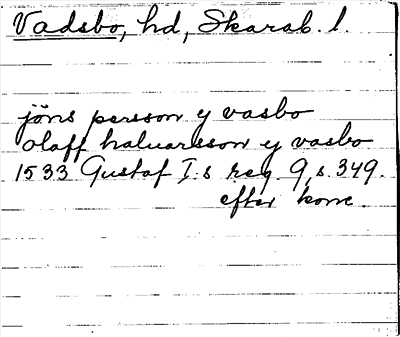 Vadsbo, hd, Skarab. l.
jöns persson y vasbo
olaff haluarsson y vasbo
1533 Gustaf I:s reg 9, s. 349.
efter konc.